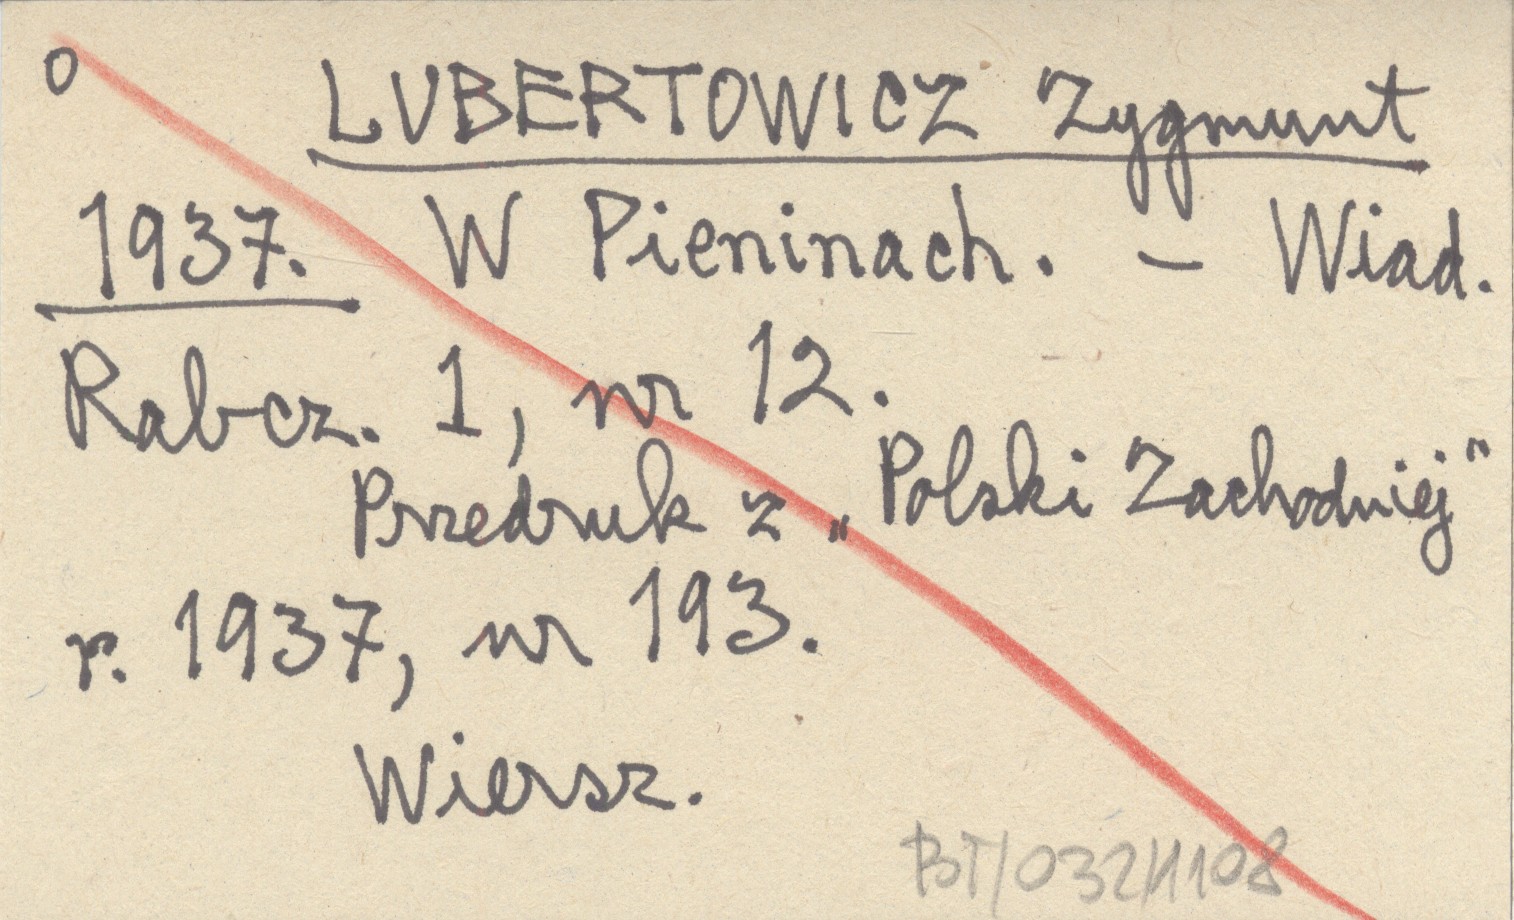 o LUBERTOWICZ Zygmunt
1937. W Pieninach. – Wiad.
Rabcz. 1, nr 12.
Przedruk z „Polski Zachodniej"
r. 1937, nr 193.
Wiersz.
BT/032/1108